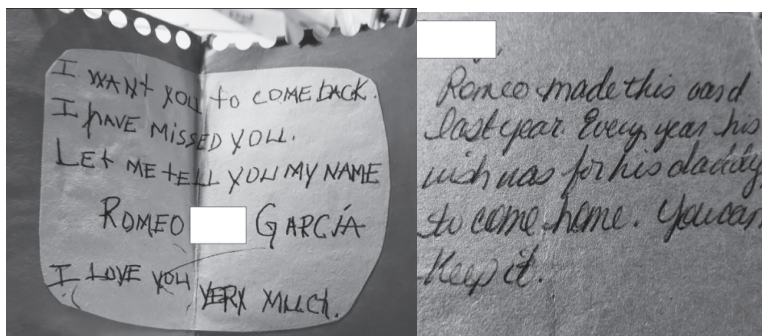 I WANT YOU to COME BACK.
I HAVE MISSED YOU.
LEt ME tELL YOU MY NAME
ROMEO GARCÍA
I LOVE YOU VERY MUCH.
Romeo made this card
last year. Every year his
wish was for his daddy
to come home. You can
keep it.